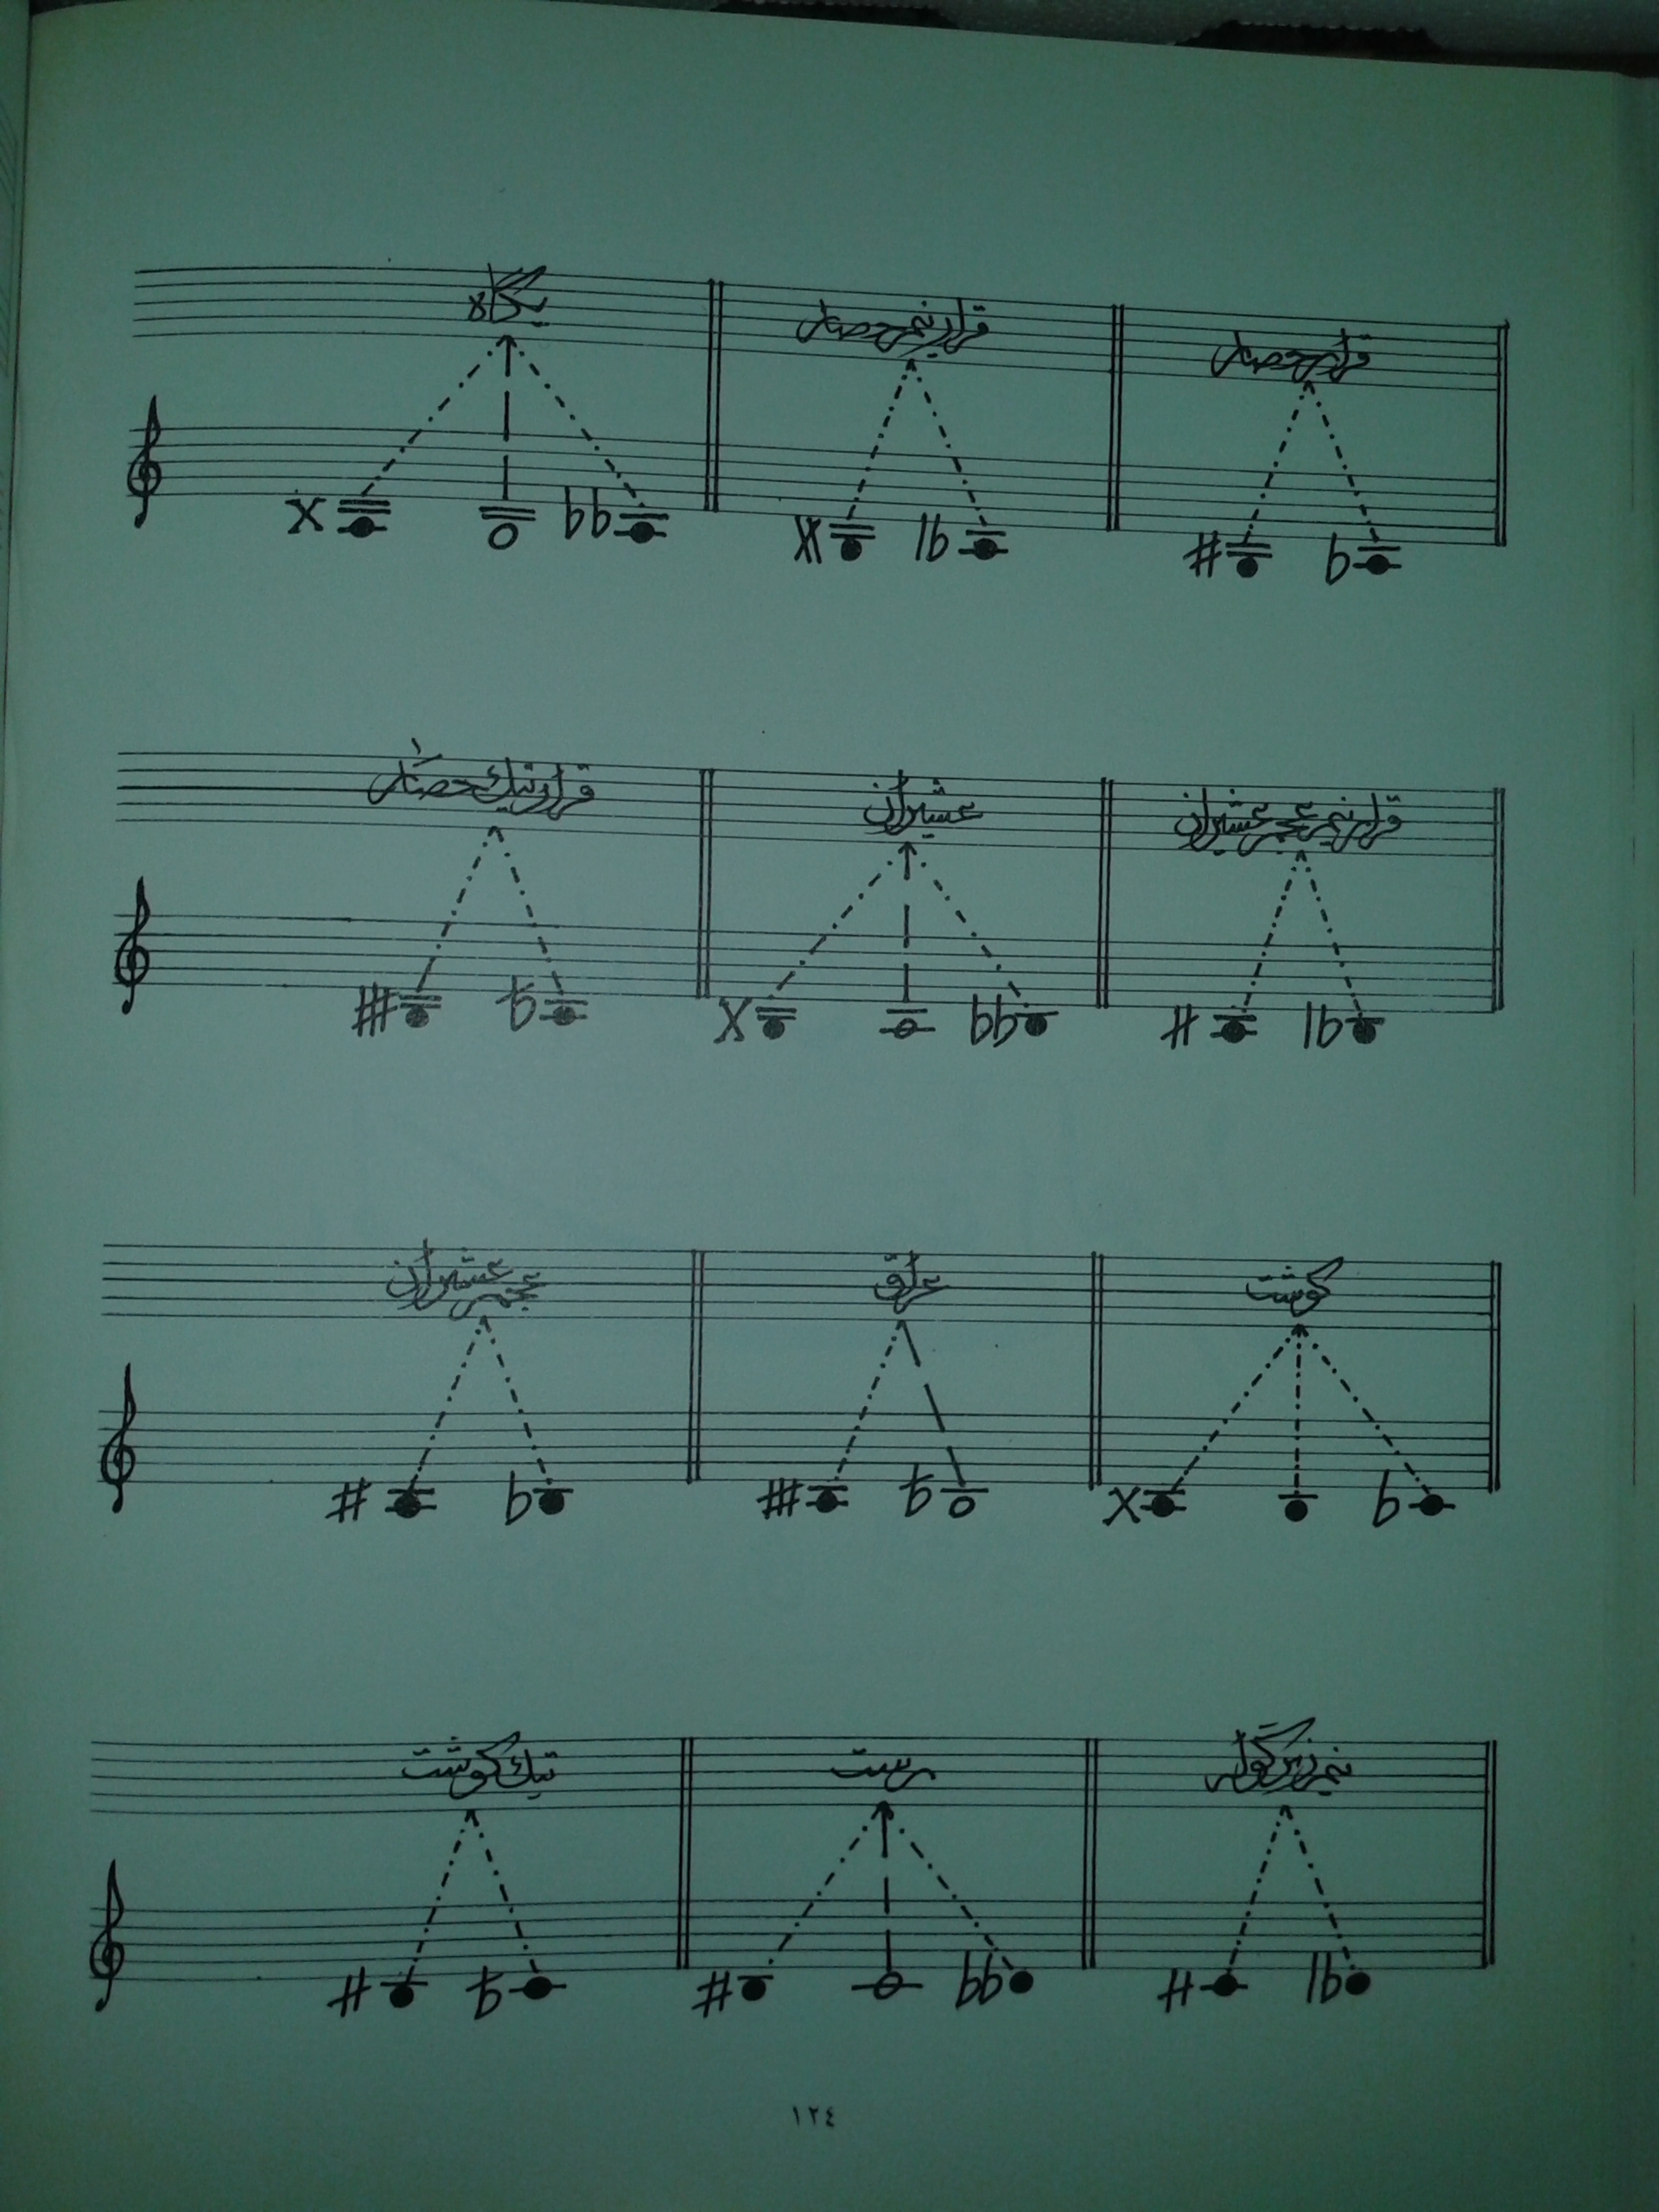 يگاه قرار نيم حصار قرار حصار
قرار تيك حصار عشيران قرار نيم عجم عشيران
عجم عشيران عراق گوشت
تيك گوشت رست نيم زيرگوله
١٢٤